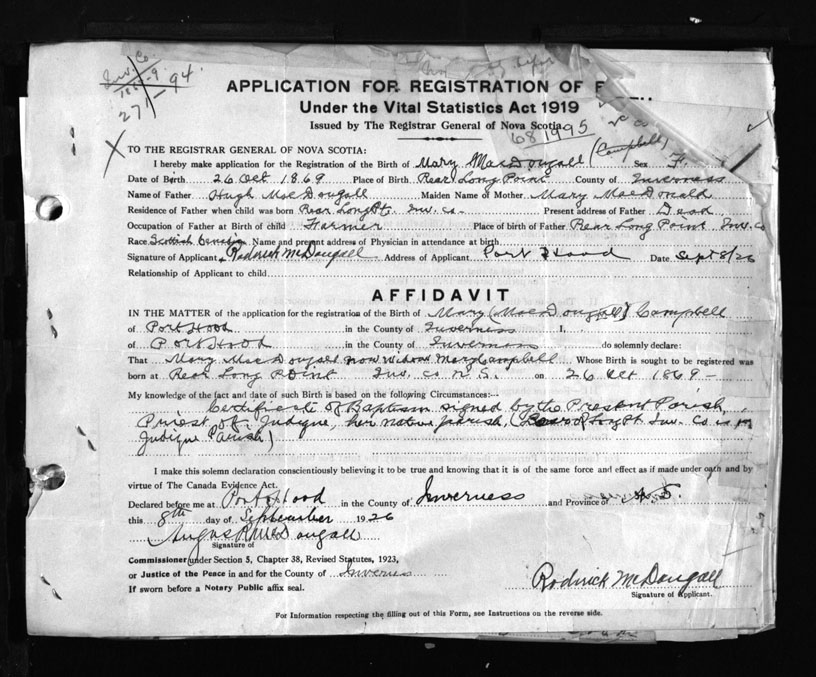 Inv. Co.
1869-9
271-94.
APPLICATION FOR REGISTRATION OF B
Under the Vital Statistics Act 1919
Issued by The Registrar General of Nova Scotia
681995
TO THE REGISTRAR GENERAL OF NOVA SCOTIA:
I hereby make application for the Registration of the Birth of Mary MacDougall (Campbell) Sex F.
Date of Birth 26 Oct 1869 Place of Birth Rear Long Point County of Inverness
Name of Father Hugh MacDougall Maiden Name of Mother Mary MacDonald
Residence of Father when child was born Rear Long Pt. Inv. Co. Present address of Father Dead
Occupation of Father at Birth of child Farmer Place of birth of Father Rear Long Point Inv. Co
Race Scottish Canadian Name and present address of Physician in attendance at birth
Signature of Applicant Rodrick McDougall Address of Applicant Port Hood Date Sept 8/26
Relationship of Applicant to child
AFFIDAVIT
IN THE MATTER of the application for the registration of the Birth of Mary (MacDougall) Campbell
of Port Hood in the County of Inverness I,
of Port Hood in the County of Inverness do solemnly declare:
That Mary MacDougall now Widow Mary Campbell Whose Birth is sought to be registered was
born at Rear Long Point Inv. Co N.S. on 26 Oct 1869-
My knowledge of the fact and date of such Birth is based on the following Circumstances:--
Certificate of Baptism signed by the Present Parish
Priest of Judique, her native parish, (Rear of Long Pt Inv. Co is in
Judique Parish)
I make this solemn declaration conscientiously believing it to be true and knowing that it is of the same force and effect as if made under oath and by
virtue of The Canada Evidence Act.
Declared before me at Port Hood in the County of Inverness and Province of N.S.
this 8th day of September 1926
Angus R McDougall
Signature of
Commissioner under Section 5, Chapter 38, Revised Statutes, 1923,
or Justice of the Peace in and for the County of Inverness
If sworn before a Notary Public affix seal.
Rodrick McDougall
Signature of Applicant.
For Information respecting the filling out of this Form, see Instructions on the reverse side.